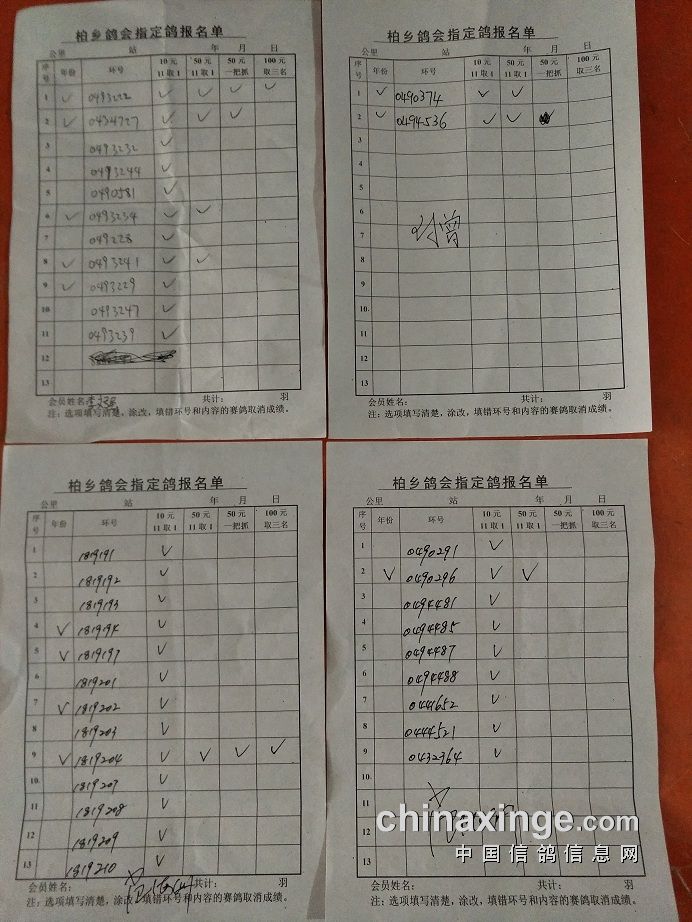 柏乡鸽会指定鸽报名单
公里 站 年 月 日
序号 年份 环号 10元 11取1 50元 11取1 50元 一把抓 100元 取三名
1 ✓ 0493222 ✓ ✓ ✓ ✓
2 ✓ 0434727 ✓ ✓ ✓
3 0493232 ✓
4 0493244 ✓
5 0490581 ✓
6 ✓ 0493234 ✓ ✓
7 049228 ✓
8 ✓ 0493241 ✓ ✓
9 ✓ 0493229 ✓
10 0493247 ✓
11 0493239 ✓
12
13
会员姓名: 共计: 羽
注:选项填写清楚,涂改,填错环号和内容的赛鸽取消成绩。
柏乡鸽会指定鸽报名单
公里 站 年 月 日
序号 年份 环号 10元 11取1 50元 11取1 50元 一把抓 100元 取三名
1 ✓ 0490374 ✓ ✓
2 ✓ 0494536 ✓ ✓
3
4
5
6
7
8
9
10
11
12
13
会员姓名: 共计: 羽
注:选项填写清楚,涂改,填错环号和内容的赛鸽取消成绩。
柏乡鸽会指定鸽报名单
公里 站 年 月 日
序号 年份 环号 10元 11取1 50元 11取1 50元 一把抓 100元 取三名
1 1819191 ✓
2 1819192 ✓
3 1819193 ✓
4 ✓ 1819194 ✓
5 ✓ 1819197 ✓
6 1819201 ✓
7 ✓ 1819202 ✓
8 1819203 ✓
9 ✓ 1819204 ✓ ✓ ✓ ✓
10 1819207 ✓
11 1819208 ✓
12 1819209 ✓
13 1819210 ✓
会员姓名: 共计: 羽
注:选项填写清楚,涂改,填错环号和内容的赛鸽取消成绩。
柏乡鸽会指定鸽报名单
公里 站 年 月 日
序号 年份 环号 10元 11取1 50元 11取1 50元 一把抓 100元 取三名
1 0490291 ✓
2 ✓ 0490296 ✓ ✓
3 0494481 ✓
4 0494485 ✓
5 0494487 ✓
6 0494488 ✓
7 044652 ✓
8 0444521 ✓
9 0432364 ✓
10
11
12
13
会员姓名: 共计: 羽
注:选项填写清楚,涂改,填错环号和内容的赛鸽取消成绩。
chinaxinge.com
中国信鸽信息网